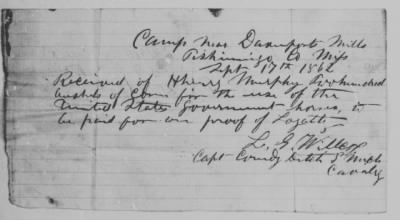 Camp Near Davenport Mills
Tishimingo Co Miss
Sept 17th 1862
Received of Henry Murphy Two hundred
bushels of Corn for the use of the
United States Government horses, to
be paid for on proof of Loyalty
L. G.
Capt Comdg 3 Mich
Cavalry